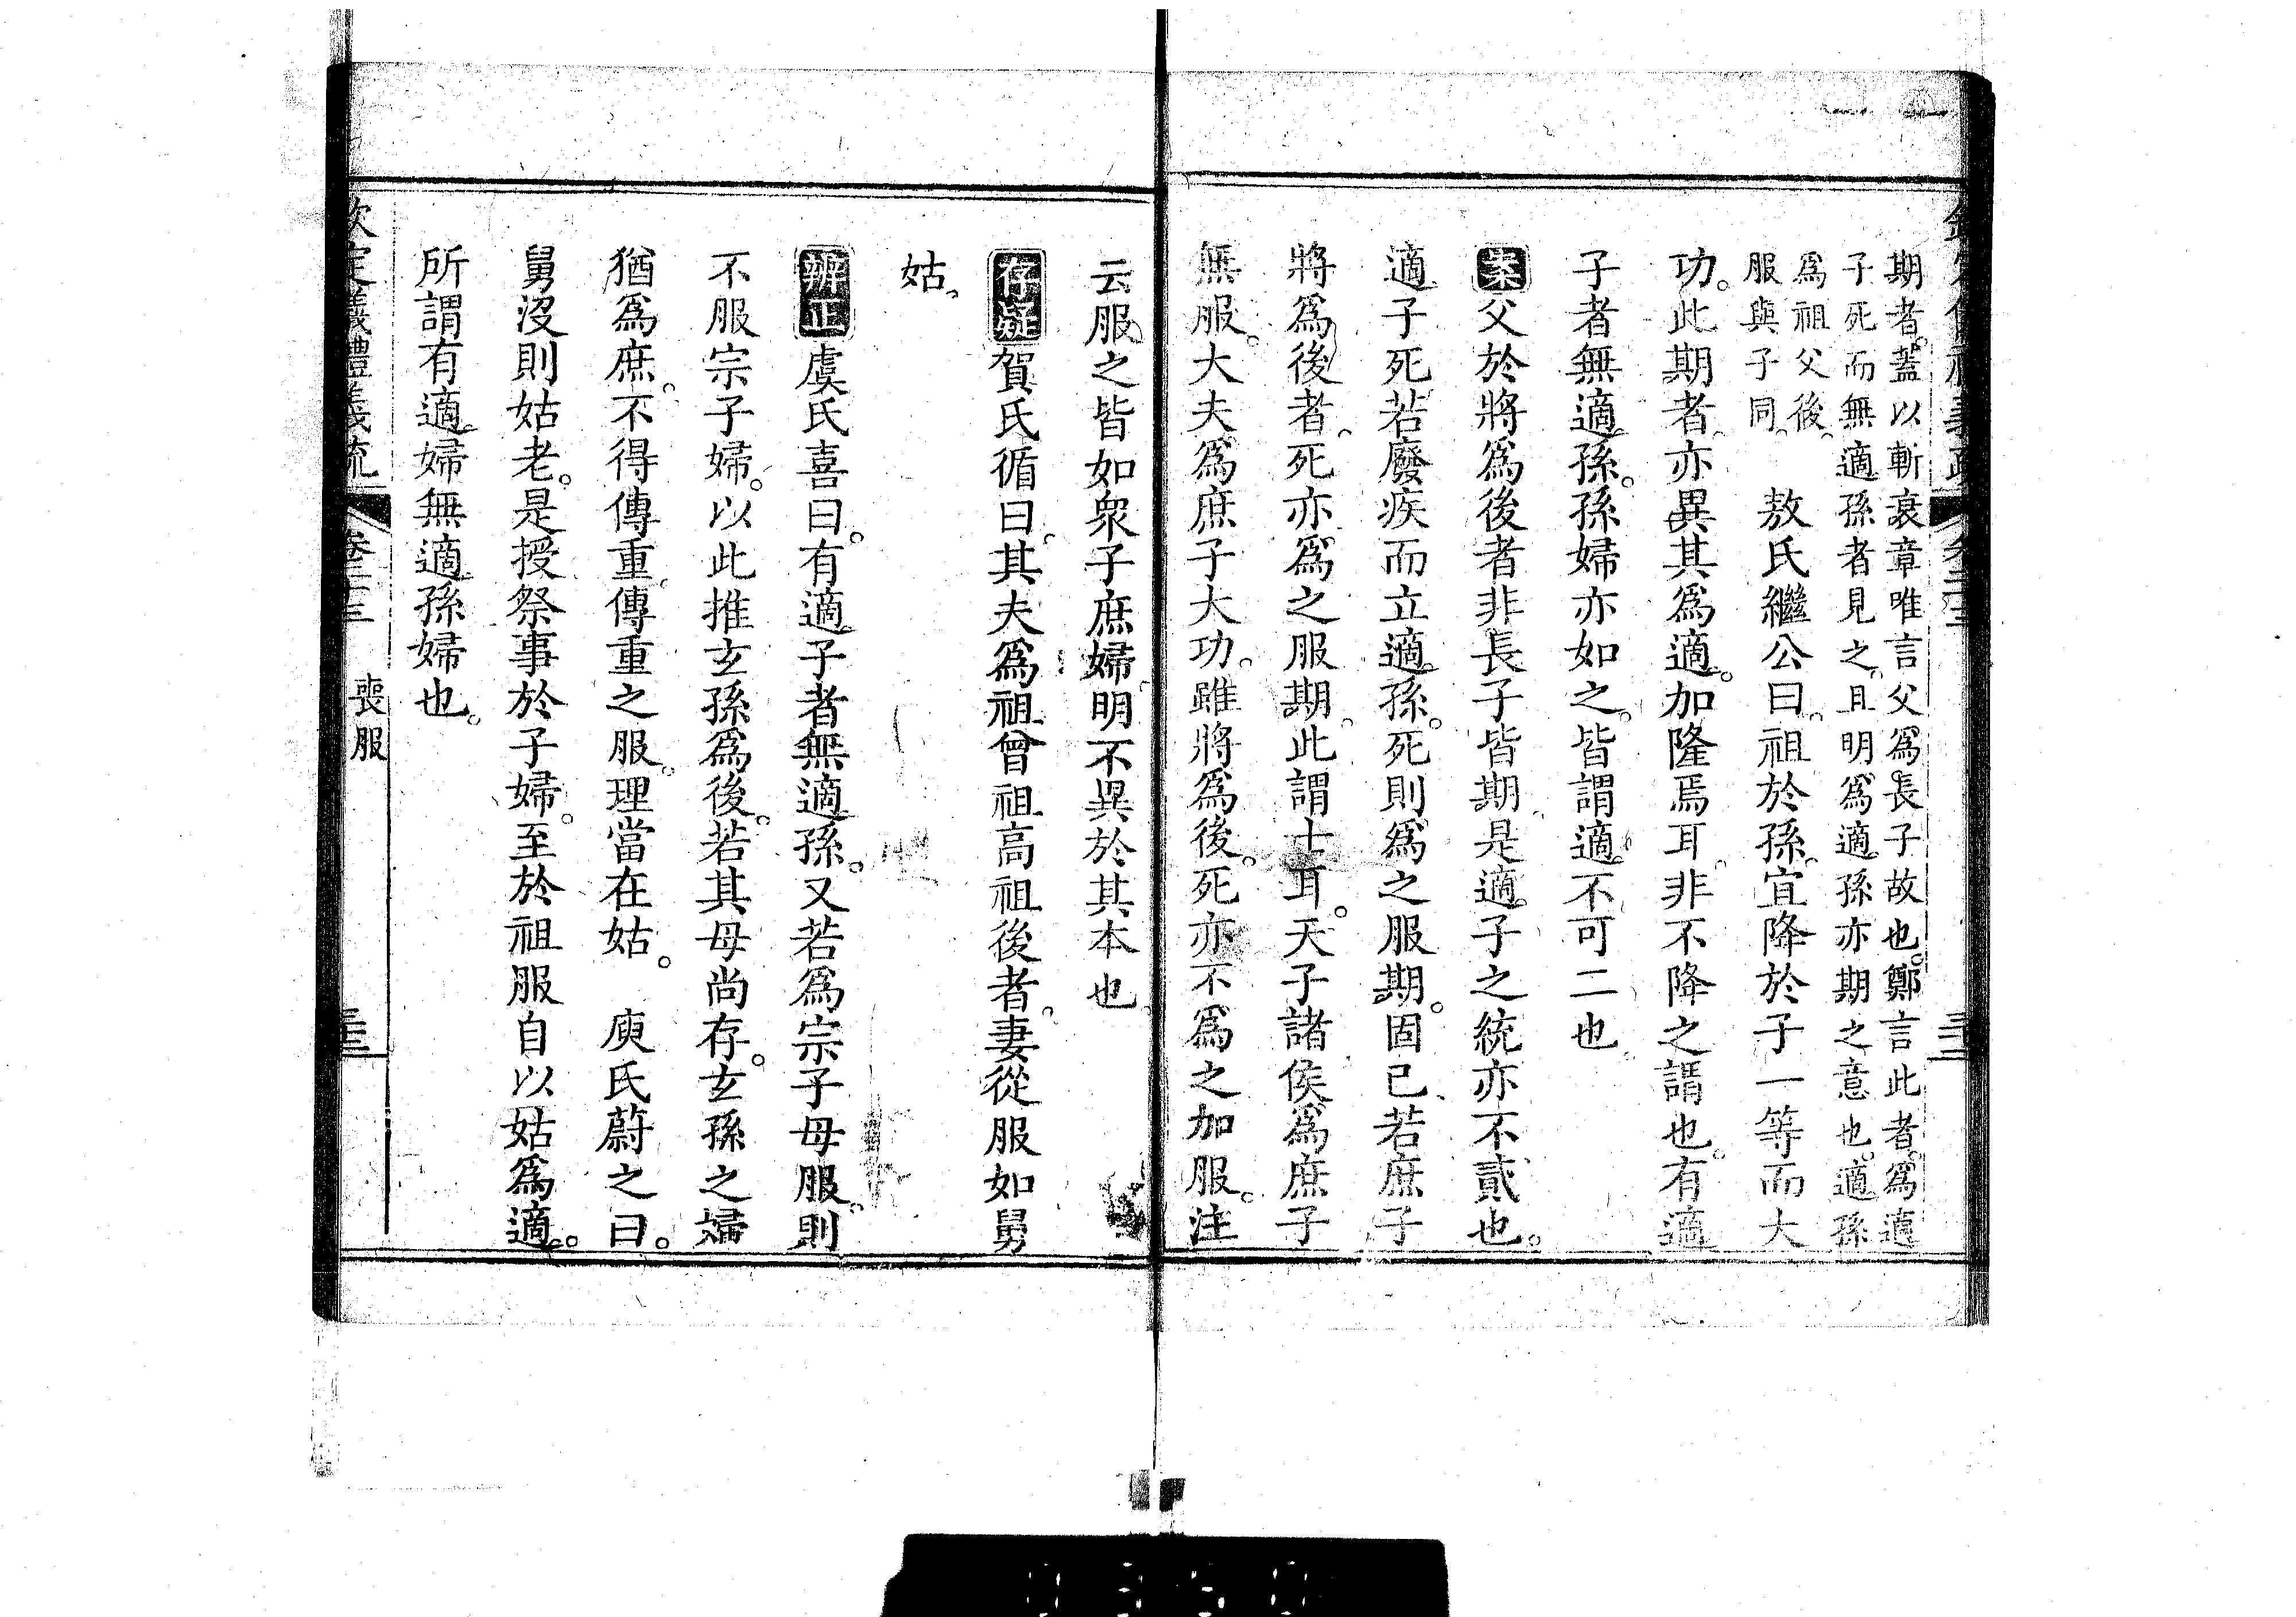 期者。蓋以斬衰章唯言父爲長子故也。鄭言此者。爲適
子死而無適孫者見之。且明爲適孫亦期之意也。適孫
爲祖父後。
服與子同。
敖氏繼公曰。祖於孫。宜降於子一等而大
功。此期者。亦異其爲適。加隆焉耳。非不降之謂也。有適
子者無適孫。孫婦亦如之。皆謂適。不可二也
案父於將爲後者非長子皆期。是適子之統亦不貳也。
適子死若廢疾而立適孫。死則爲之服期。固已。若庶子
將爲後者。死亦爲之服期。此謂士耳。天子諸侯爲庶子
無服。大夫爲庶子大功。雖將爲後。死亦不爲之加服。注
云服之皆如衆子庶婦。明不異於其本也
存疑賀氏循曰。其夫爲祖曾祖高祖後者。妻從服如舅
姑。
辨正虞氏喜曰。有適子者無適孫。又若爲宗子母服。則
不服宗子婦。以此推玄孫爲後。若其母尚存。玄孫之婦
猶爲庶。不得傳重。傳重之服。理當在姑。 庾氏蔚之曰。
舅沒則姑老。是授祭事於子婦。至於祖服自以姑爲適。
所謂有適婦無適孫婦也。
欽定儀禮義疏 卷二十三 喪服 三十三